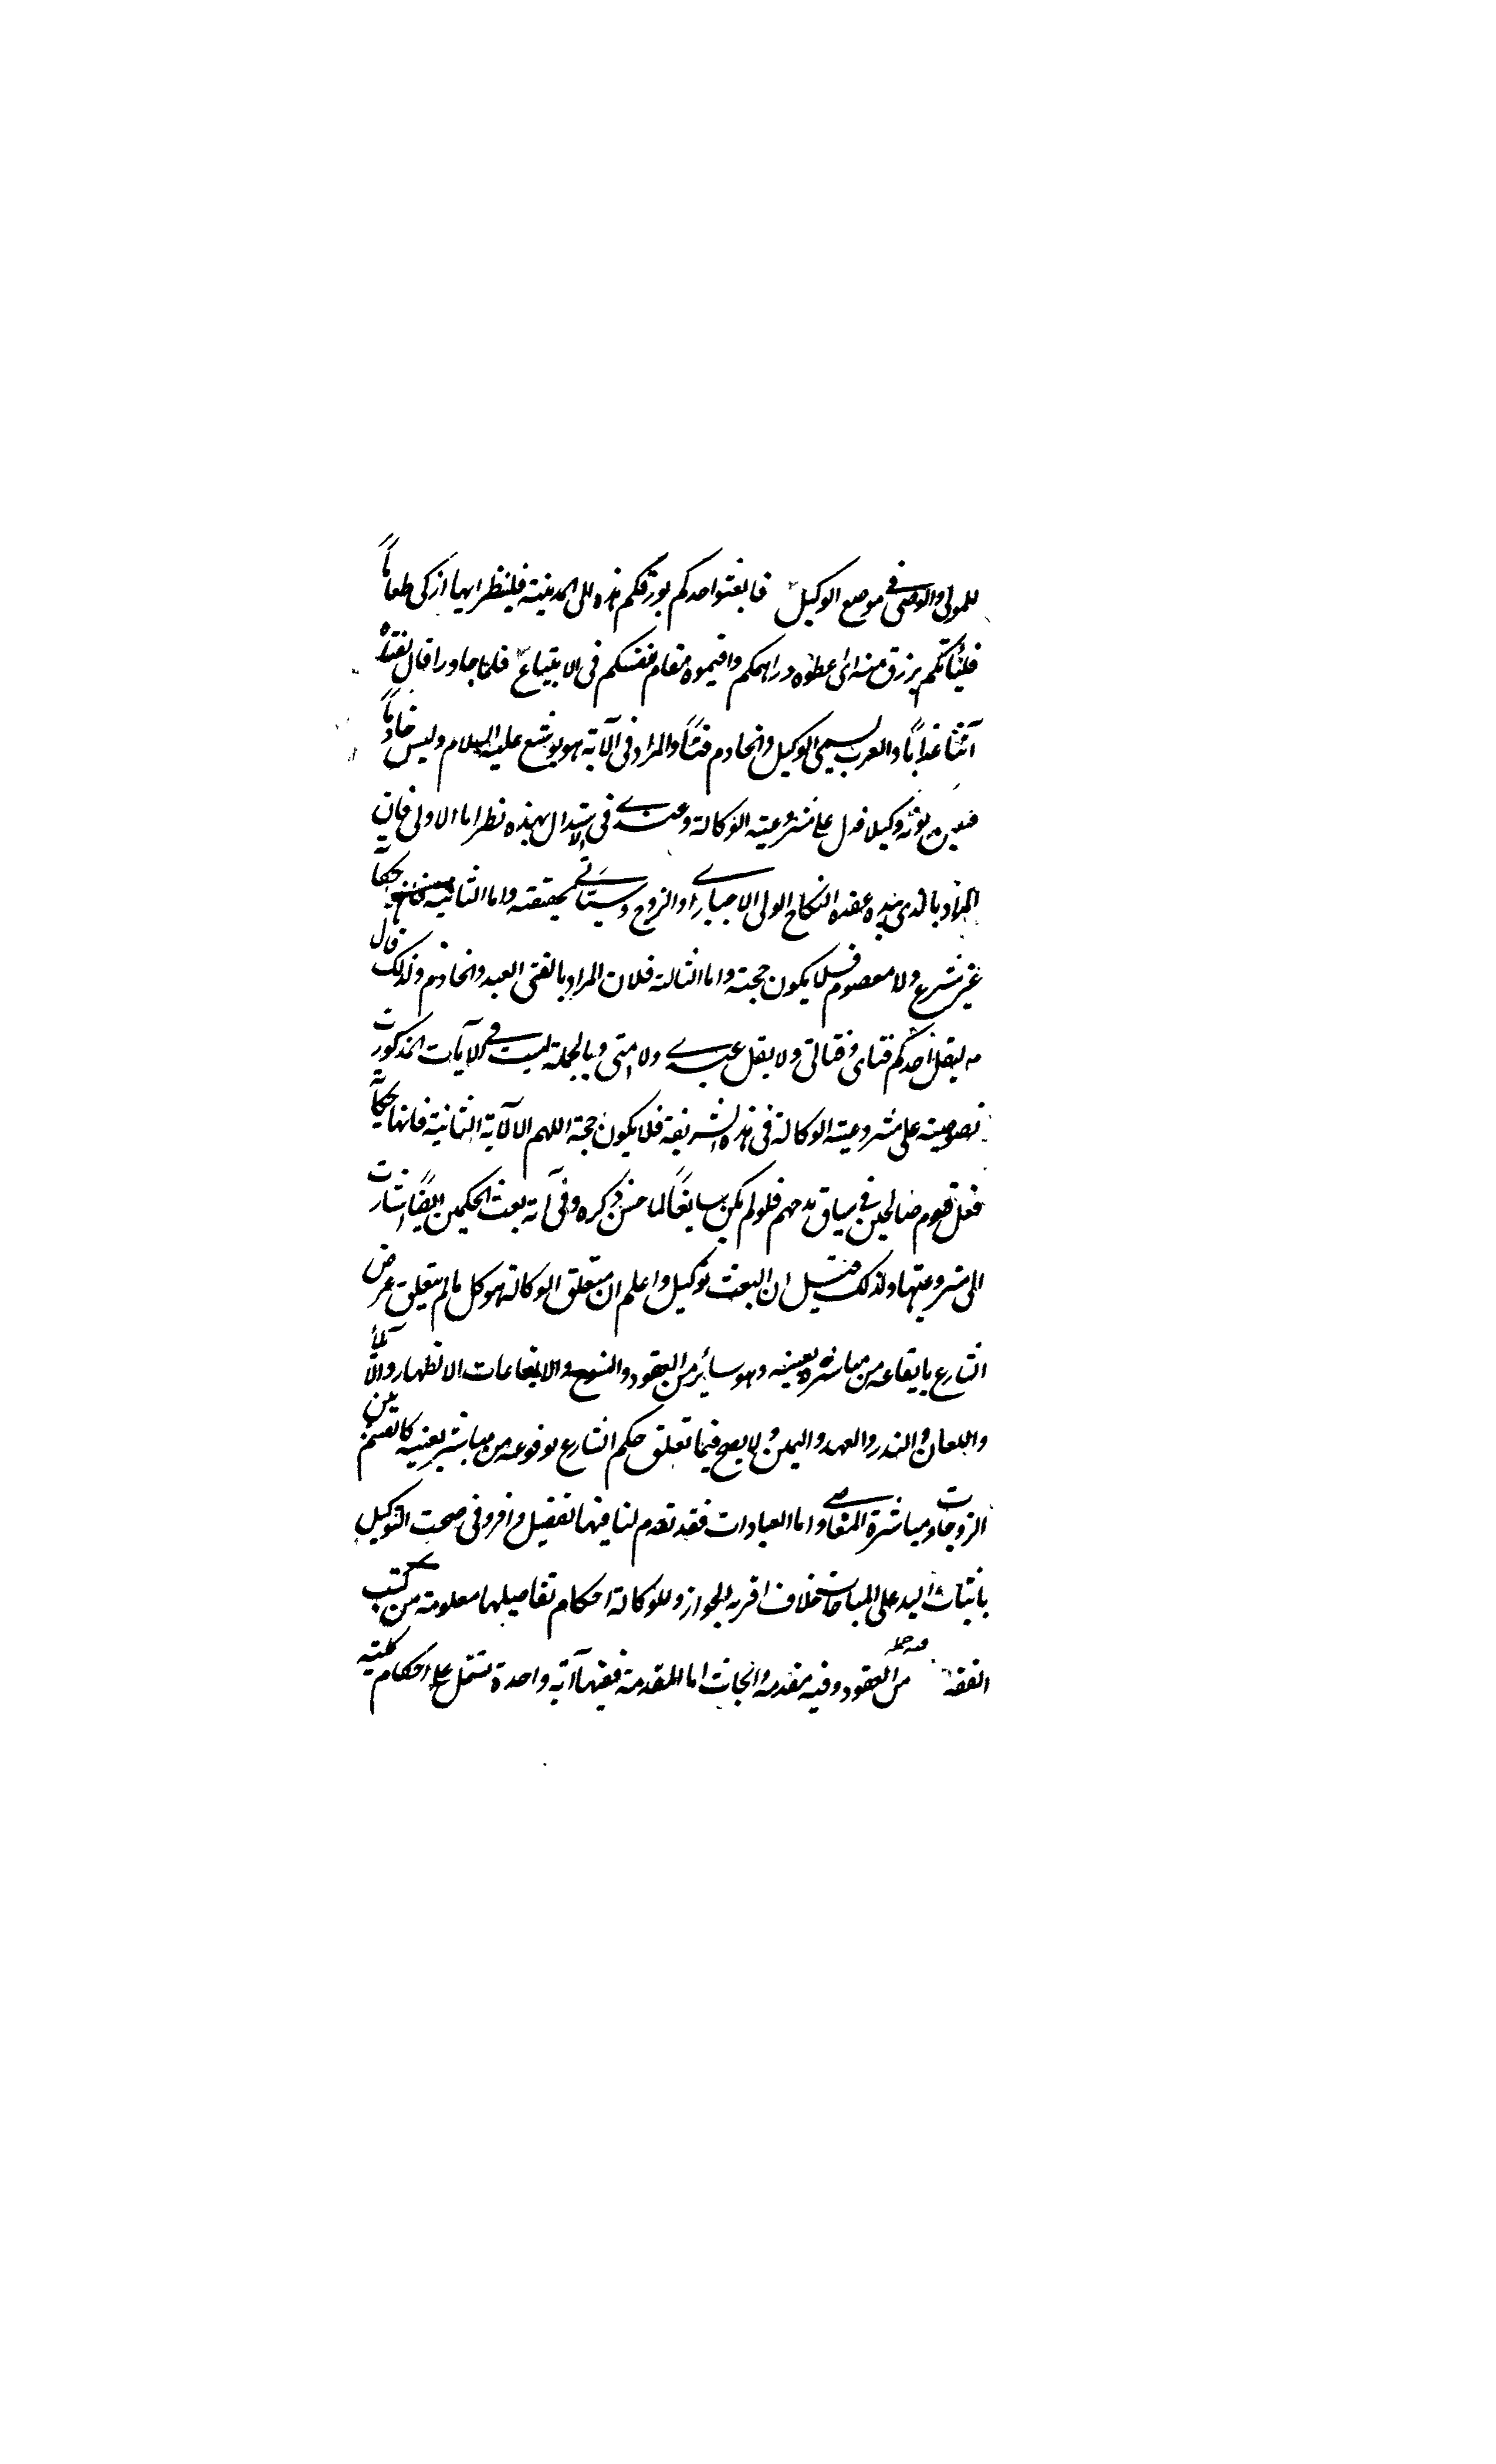 للمولى والوصى فى موضع الوكيل فابعثوا احدكم بورقكم هذه الى المدينة فلينظر ايها ازكى طعاماً
فليأتكم برزق منه اى اعطوه دراهمكم واقيموه مقام نفسكم فى الابتياع فلما جاوزا قال لفتيه
آتنا غداءنا والعرب يسمى الوكيل والخادم فتىً والمراد فى الآية هو يوشع عليه السلام وليس خادماً
فتعين كونه وكيلا فدل على مشروعية الوكالة وعندى فى الاستدلال بهذه نظر اما الاولى فان
المراد بالذى بيده عقدة النكاح الولى الاجبارى او الزوج وسيأتى تحقيقه واما الثانية حكاية
غير شرع ولا معصوم فلا يكون حجة واما الثالثة فلان المراد بالفتى العبد والخادم ولذلك قال
ص ليقل احدكم فتاى وفتاتى ولا يقل عبدى ولا امتى وبالجملة ليست فى الآيات المذكورات
نصوصية على مشروعية الوكالة فى هذه الشريعة فلا يكون حجة اللهم الا الآية الثانية فانها حكاية
فعل قوم صالحين فى سياق مدحهم فلو لم يكن سايغاً لما حسن ذكره وفى آية بعث الحكمين ايضاً اشارت
الى مشروعيتها ولذلك قيل ان البعث توكيل واعلم ان متعلق الوكالة هو كل ما لم يتعلق غرض
الشارع بايقاعه من مباشره بعينه وهو ساير من العقود والفسوخ والايقاعات الا الظهار والايلاء
واللعان والنذر والعهد واليمين ولا يصح فيما تعلق حكم الشارع بوقوعه من مباشر بعينه كالقسم بين
الزوجات ومباشرة المعاصى واما العبادات فقد تقدم لنا فيها تفصيل وافر وفى صحت التوكيل
باثبات اليد على المباحات خلاف اقربه الجواز وللوكالة احكام تفاصيلها معلومة من كتب
الفقه من العقود وفيه مقدمه وابحاث اما المقدمة ففيها آية واحدة تشتمل على احكام كلية